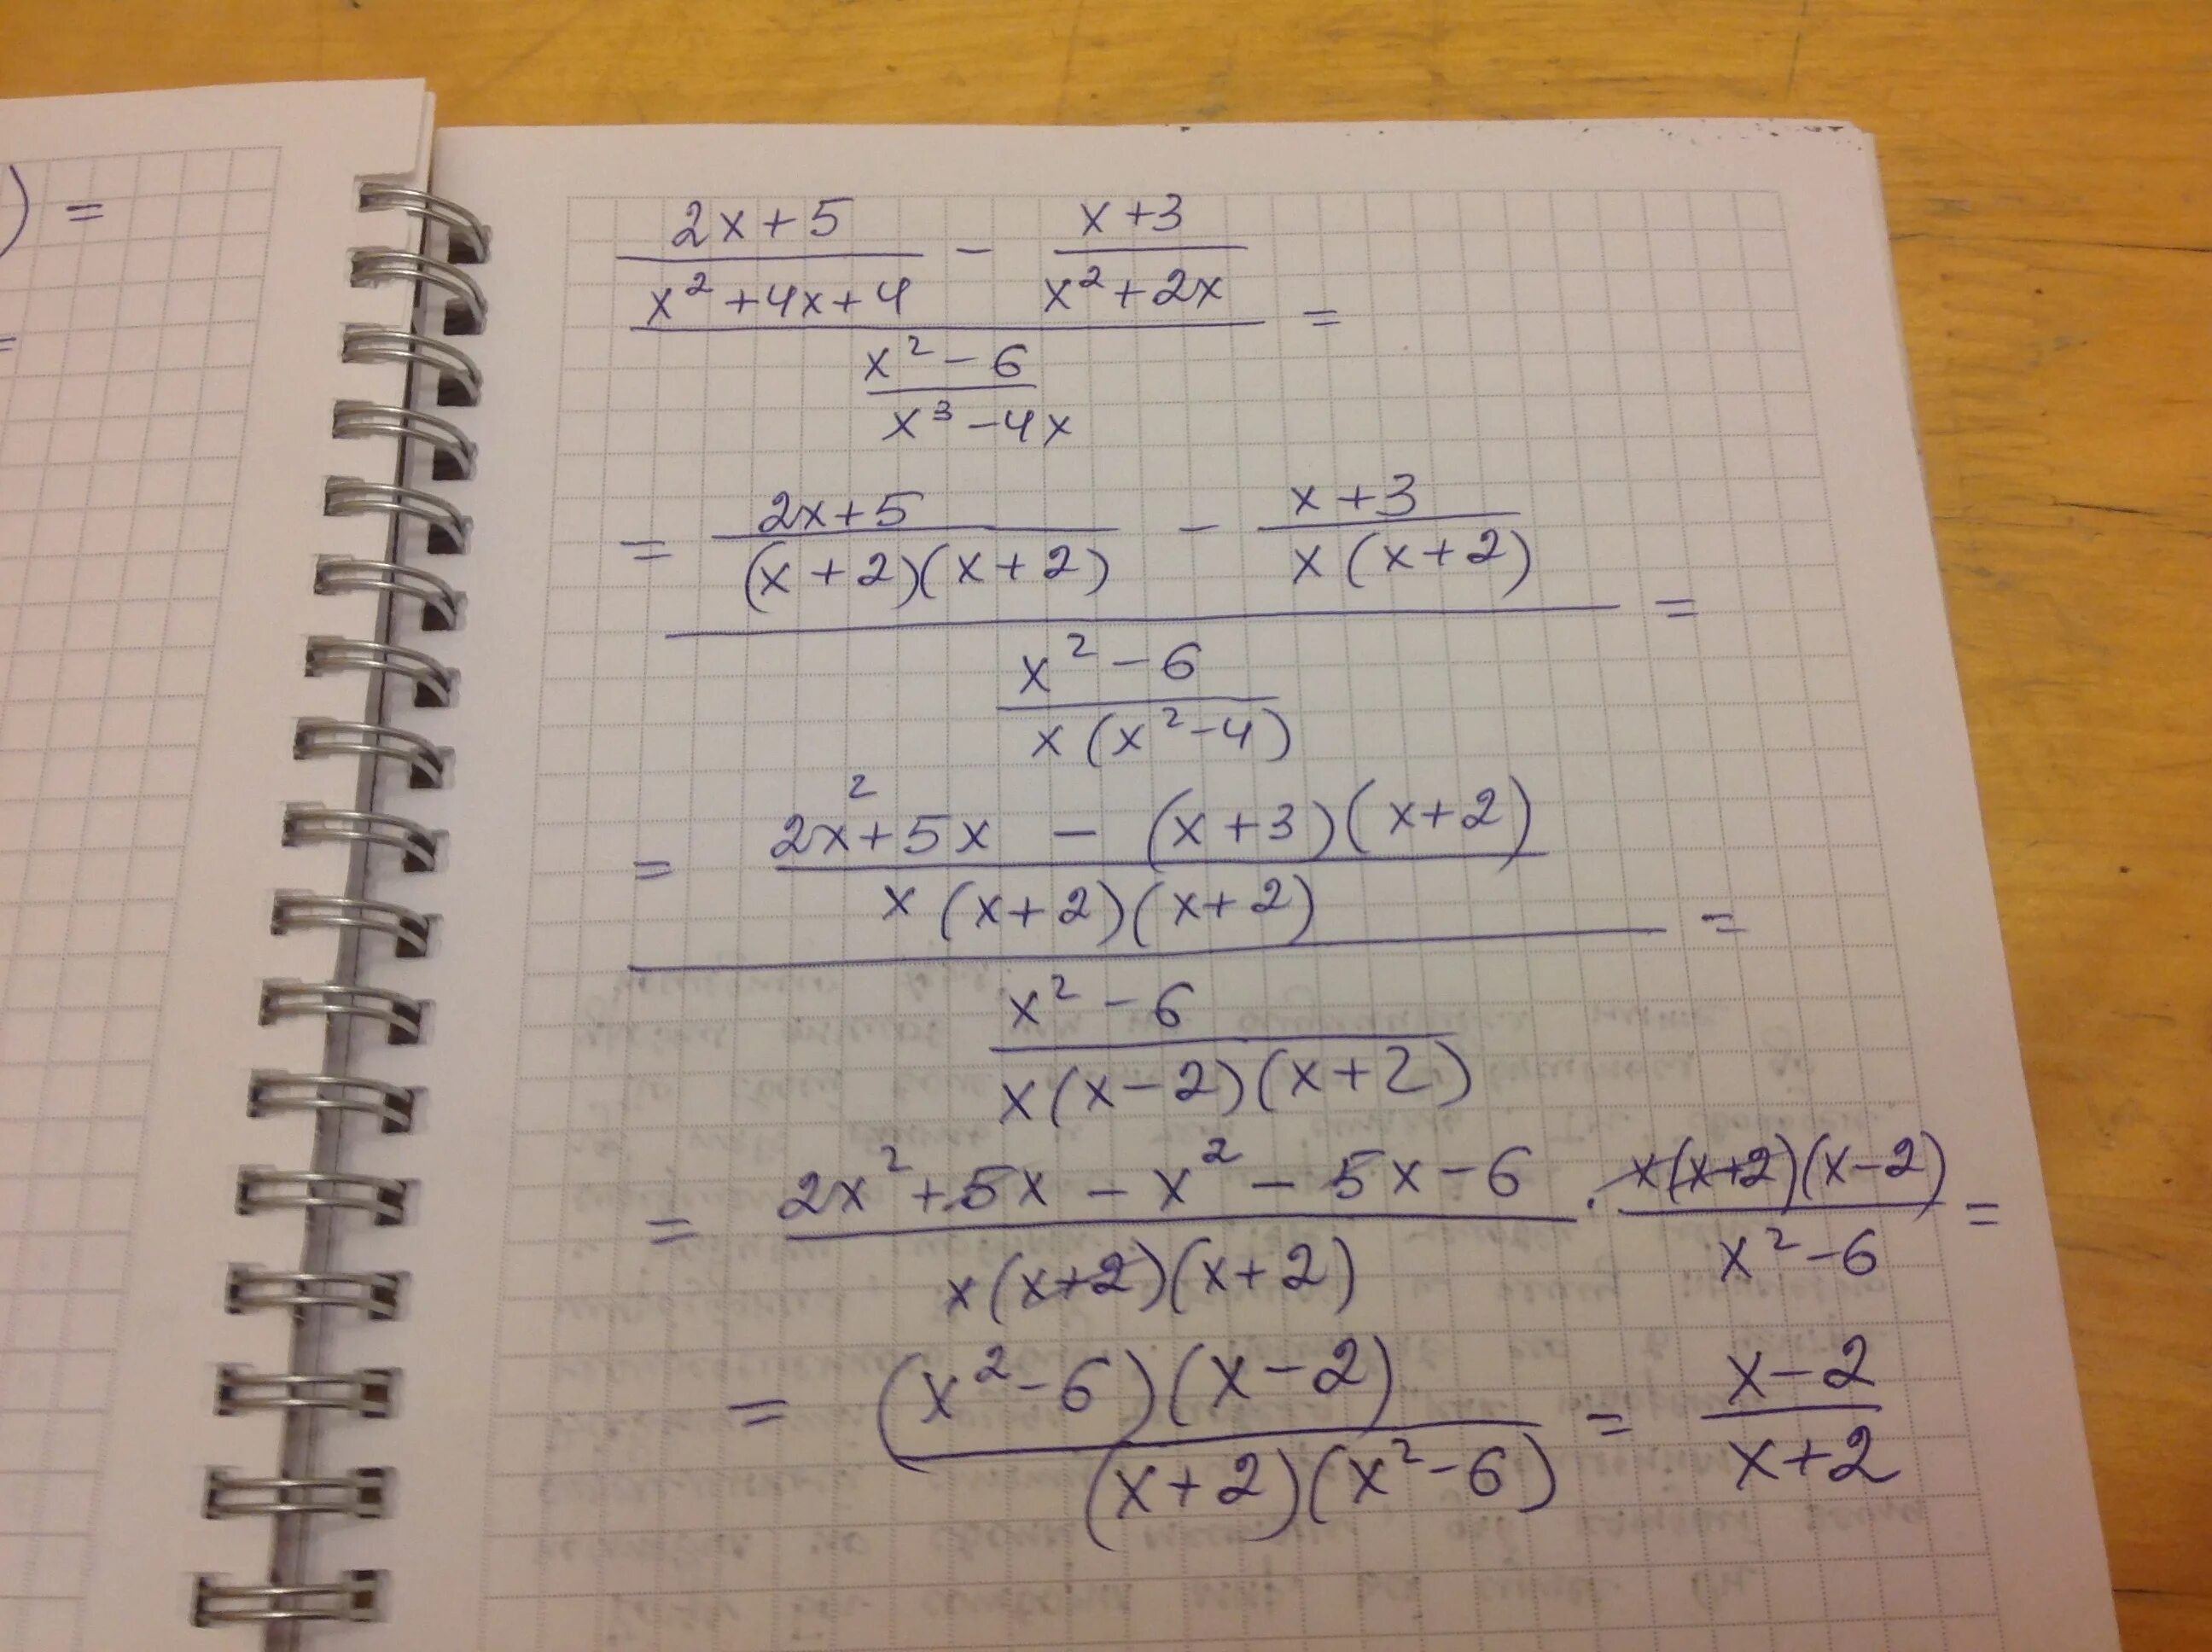 ) =
=
(2x+5)/(x²+4x+4) - (x+3)/(x²+2x) =
(x²-6)/(x³-4x)
= (2x+5)/((x+2)(x+2)) - (x+3)/(x(x+2)) =
(x²-6)/(x(x²-4))
= (2x²+5x - (x+3)(x+2))/(x(x+2)(x+2)) =
(x²-6)/(x(x-2)(x+2))
= (2x²+5x-x²-5x-6)/(x(x+2)(x+2)) · (x(x+2)(x-2))/(x²-6) =
= ((x²-6)(x-2))/((x+2)(x²-6)) = (x-2)/(x+2)